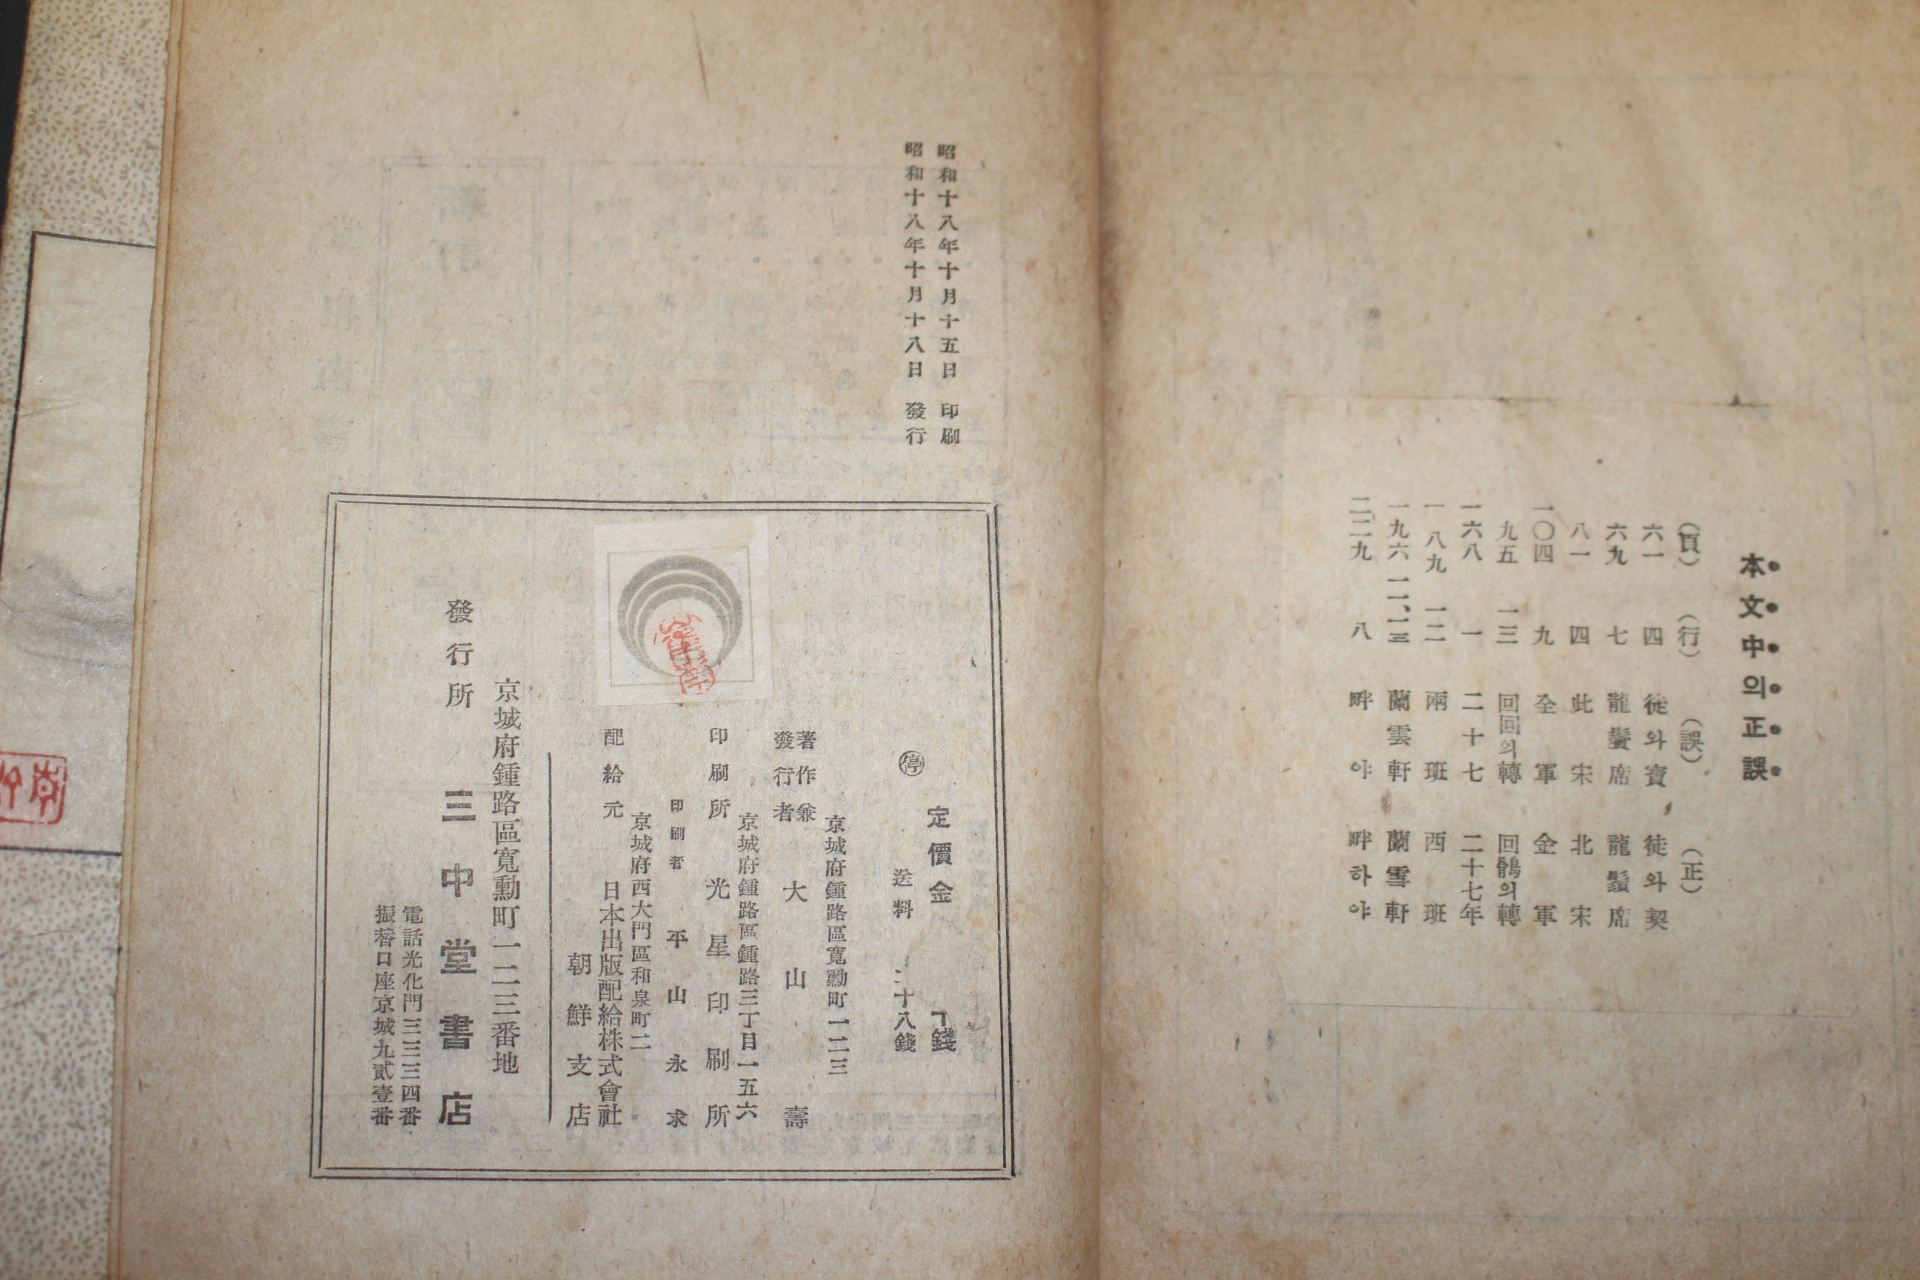 本文中의正誤
（頁） （行） （誤） （正）
六一 四 徒와寶 徒와契
六九 七 龍鬢席 龍鬚席
八一 四 此宋 北宋
一〇四 九 全軍 金軍
九五 一三 回回의轉 回鶻의轉
一六八 一 二十七 二十七年
一八九 一二 兩班 西班
一九六 一二、一三 蘭雲軒 蘭雪軒
二二九 八 畔야 畔하야
昭和十八年十月十五日 印刷
昭和十八年十月十八日 發行
定價金 錢
停 送料 十八錢
京城府鍾路區寬勳町一二三
著作兼發行者 大山壽
京城府鍾路區鍾路三丁目一五六
印刷所 光星印刷所
印刷者 平山永求
京城府西大門區和泉町二
配給元 日本出版配給株式會社
朝鮮支店
京城府鍾路區寬勳町一二三番地
發行所 三中堂書店
電話光化門三三三四番
振替口座京城九貳壹番